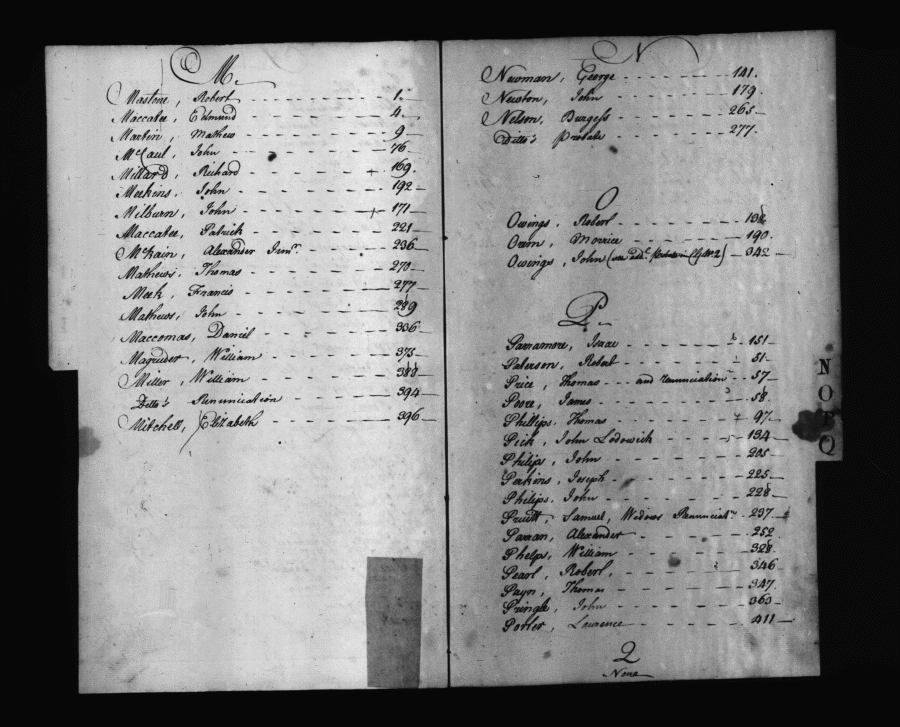 M.
Mastore, Robert - - - - - - - - 1.
Maccatee, Edmund - - - - - - - 4.
Martin, Mathew - - - - - - - - 9
McCaul, John - - - - - - - - 76
Millard, Richard - - - - - - - 169.
Meekins, John - - - - - - - - 192
Milburn, John - - - - - - - - 171
Maccatee, Patrick - - - - - - 221
McKain, Alexander Junr. - - - - 236
Mathews, Thomas - - - - - - - 270
Meek, Francis - - - - - - - - 277
Mathews, John - - - - - - - - 289
Maccomas, Daniel - - - - - - - 336
Magruder, William - - - - - - 375
Miller, William - - - - - - - 388
Ditto's Renunciation - - - - - 394
Mitchell, Elizabeth - - - - - 396
N
Newman, George - - - - - - - 141.
Newton, John - - - - - - - - 179.
Nelson, Burgess - - - - - - - 265
Ditto's Probate - - - - - - - 277.
O
Owings, Robert - - - - - - - 138
Orem, Morrice - - - - - - - - 190.
Owings, John - 342
P.
Parramore, Isaac - - - - - - 151
Paterson, Robert - - - - - - 51
Price, Thomas - - - and renunciation - - 57
Poore, James - - - - - - - - 58
Phillips. Thomas - - - - - - 97.
Pick, John Lodowick - - - - - 134
Philips, John - - - - - - - - 205
Perkins, Joseph - - - - - - - 225
Philips, John - - - - - - - - 228
Pruitt, Samuel, Widows Renunciatn. - - 237
Parran, Alexander - - - - - - 252
Phelps, William - - - - - - - 328
Pearl, Robert, - - - - - - - 346
Payn, Thomas - - - - - - - - 347
Pringle, John - - - - - - - - 363
Porter, Laurence - - - - - - 411
Q
None
N
O
P
Q